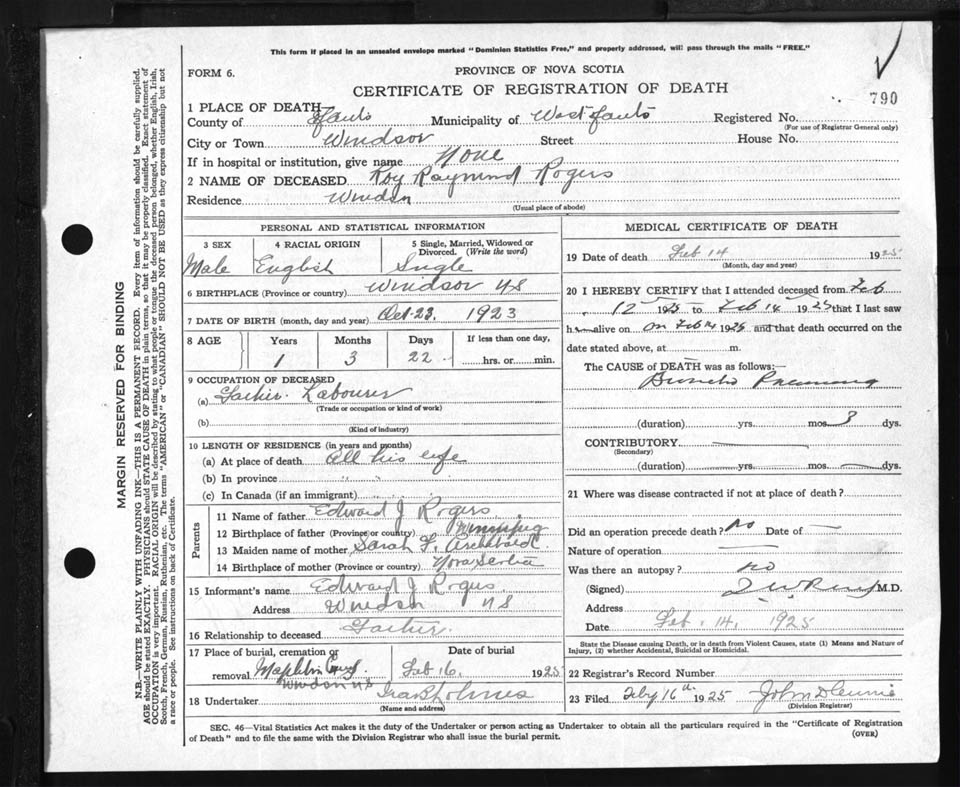 This form if placed in an unsealed envelope marked "Dominion Statistics Free," and properly addressed, will pass through the mails "FREE."
FORM 6.
PROVINCE OF NOVA SCOTIA
CERTIFICATE OF REGISTRATION OF DEATH
790
1 PLACE OF DEATH
County of Hants Municipality of West Hants Registered No.
(For use of Registrar General only)
City or Town Windsor Street House No.
If in hospital or institution, give name None
2 NAME OF DECEASED Roy Raymond Rogers
Residence Windsor
(Usual place of abode)
PERSONAL AND STATISTICAL INFORMATION
3 SEX 4 RACIAL ORIGIN 5 Single, Married, Widowed or Divorced. (Write the word)
Male English Single
6 BIRTHPLACE (Province or country) Windsor NS
7 DATE OF BIRTH (month, day and year) Oct. 23, 1923
8 AGE Years Months Days If less than one day,
1 3 22 hrs. or min.
9 OCCUPATION OF DECEASED
(a) Father. Labourer
(Trade or occupation or kind of work)
(b)
(Kind of industry)
10 LENGTH OF RESIDENCE (in years and months)
(a) At place of death All his life
(b) In province " "
(c) In Canada (if an immigrant) " "
Parents
11 Name of father Edward J Rogers
12 Birthplace of father (Province or country) Winnipeg
13 Maiden name of mother Sarah F. Archibald
14 Birthplace of mother (Province or country) Nova Scotia
15 Informant's name Edward J Rogers
Address Windsor NS
16 Relationship to deceased Father.
17 Place of burial, cremation or removal Date of burial
Windsor NS Feb 16, 1925
18 Undertaker Holmes
(Name and address)
MEDICAL CERTIFICATE OF DEATH
19 Date of death Feb 14 1925
(Month, day and year)
20 I HEREBY CERTIFY that I attended deceased from Feb
12 1925 to Feb 14 1925 that I last saw
h alive on Feb 14 1925 and that death occurred on the
date stated above, at m.
The CAUSE of DEATH was as follows:—
Broncho Pneumonia
(duration) yrs. mos. 3 dys.
CONTRIBUTORY
(Secondary)
(duration) yrs. mos. dys.
21 Where was disease contracted if not at place of death?
Did an operation precede death? No Date of —
Nature of operation —
Was there an autopsy? no
(Signed) M.D.
Address
Date Feb. 14, 1925
State the Disease causing Death, or in death from Violent Causes, state (1) Means and Nature of
Injury, (2) whether Accidental, Suicidal or Homicidal.
22 Registrar's Record Number
23 Filed Feby 16th 1925 John
(Division Registrar)
SEC. 46—Vital Statistics Act makes it the duty of the Undertaker or person acting as Undertaker to obtain all the particulars required in the "Certificate of Registration
of Death" and to file the same with the Division Registrar who shall issue the burial permit.
(OVER)
MARGIN RESERVED FOR BINDING
N.B.—WRITE PLAINLY WITH UNFADING INK—THIS IS A PERMANENT RECORD. Every item of information should be carefully supplied.
AGE should be stated EXACTLY. PHYSICIANS should STATE CAUSE OF DEATH in plain terms, so that it may be properly classified. Exact statement of
OCCUPATION is very important. RACIAL ORIGIN will be described by stating to what people or tongue the deceased person belonged, whether English, Irish,
Scotch, French, German, Russian, Ruthenian, etc. The terms "AMERICAN" or "CANADIAN" SHOULD NOT BE USED as they express citizenship but not
a race or people. See instructions on back of Certificate.